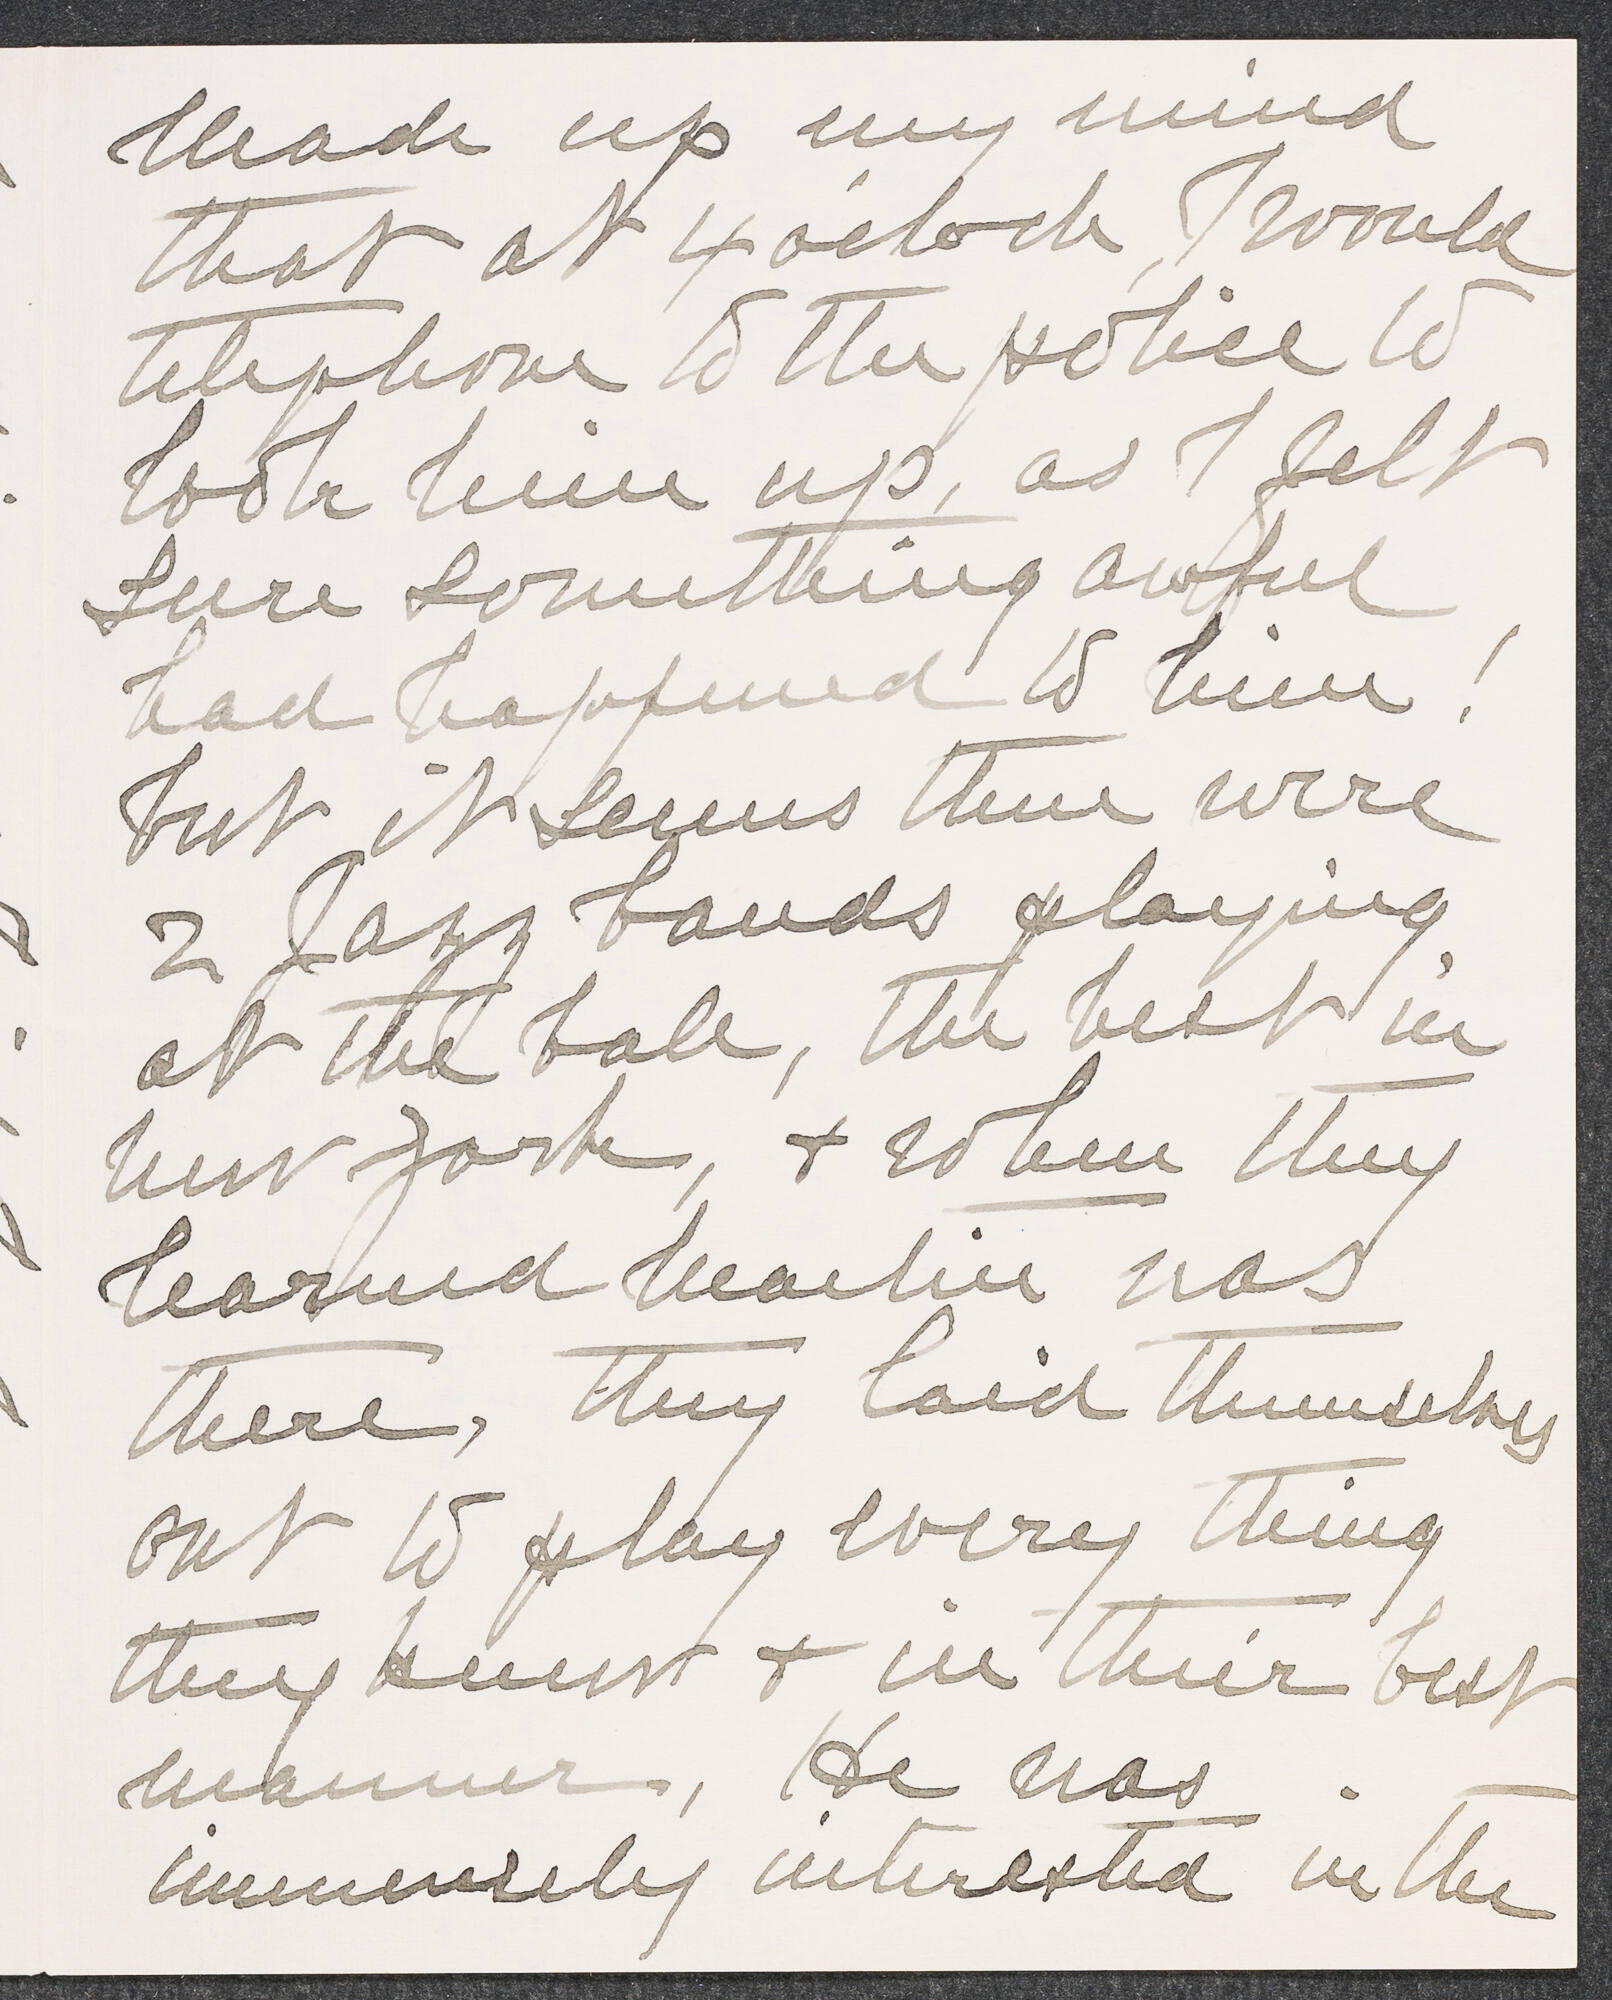 made up my mind
that at 4 o'clock, I would
telephone to the police to
look him up, as I felt
sure something awful
had happened to him!
but it seems there were
2 Jazz bands playing
at the ball, the best in
New York, & when they
learned Martin was
there, they laid themselves
out to play every thing
they knew & in their best
manner, He was
immensely interested in the